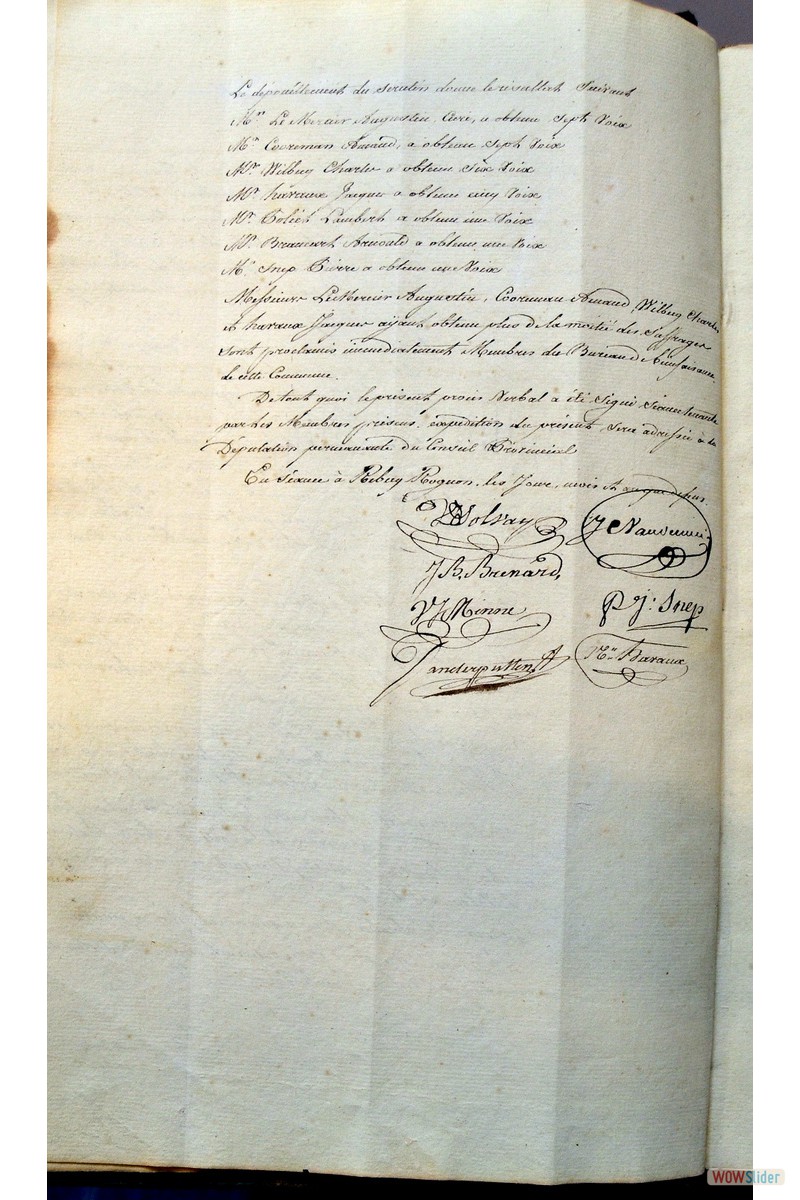 Le dépouillement du scrutin donne le résultat suivant
Mr. Le Mercier Augustin, Curé, a obtenu Sept Voix
Mr. Cooreman Amand, a obtenu Sept Voix
Mr. Wilbug Charles a obtenu Six Voix
Mr. havaux Jacques a obtenu cinq Voix
Mr. Toliet Lambert a obtenu une Voix
Mr. Brancart Arnould a obtenu une Voix
Mr. Snep Pierre a obtenu une Voix
Messieurs LeMercier Augustin, Cooreman Amand, Wilbug Charles
et havaux Jacques aÿant obtenu plus de la moitié des Suffrages
sont proclamés immédiatement Membres du Bureau de bienfaisance
de cette Commune.
De tout quoi le présent procès Verbal a été Signé Séance tenante
par les Membres présens, expédition du présent sera adressée à la
Députation permanente du Conseil Provincial
En Séance à Rebecq Rognon, les Jour, mois et an que dessus.
Solvay
J.B. Brenard,
VJ Minne
P. J: Snep
Vanderputten
Havaux
WOWSlider